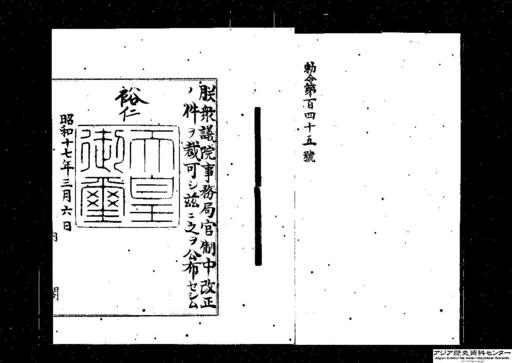 勅令第百四十五號
朕衆議院事務局官制中改正
ノ件ヲ裁可シ茲ニ之ヲ公布セシム
裕仁
天皇
御璽
昭和十七年三月六日
内
閣
アジア歴史資料センター
Japan Center for Asian Historical Records